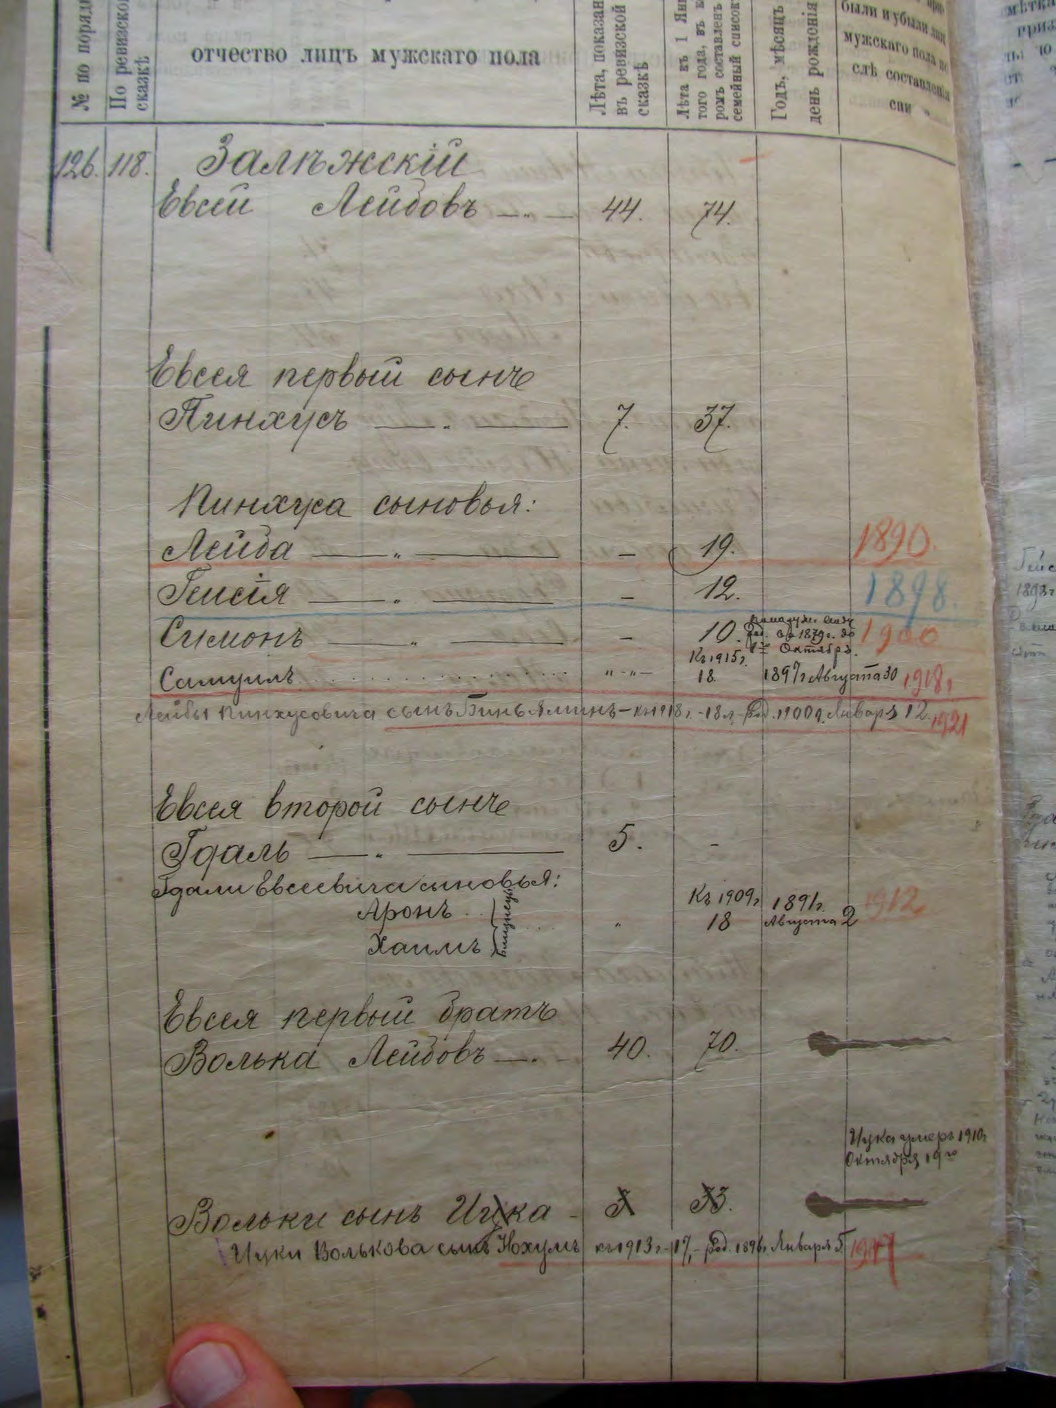 № по порядк
По ревизской сказкѣ
отчество лицъ мужскаго пола
Лѣта, показан
въ ревизской сказкѣ
Лѣта къ 1 Янв
того года, въ к
ромъ составленъ
семейный список
Годъ, мѣсяцъ
день рожденія
были и убыли лиц
мужскаго пола по
слѣ составленія
спи
126. 118. Залѣжскій
Евсей Лейбовъ 44. 74.
Евсея первый сынъ
Пинхусъ 7. 37.
Пинхуса сыновья:
Лейба — 19. 1890.
Гейсія — 12. 1898.
Симонъ — 10. 1900
род. 1879 г.
Октября.
Къ 1915 г.
Самуилъ 18 1897 г Августа 30 1918 г
Лейбы Пинхусовича сынъ Биньяминъ – къ 1918 г. - 18 л. род. 1900 г. Января 12. 1921
Евсея второй сынъ
Гдаль 5. -
Гдали Евсеевича сыновья:
Аронъ
Хаимъ
близнецы
Къ 1909 г 18
1891 г. Августа 2
1912
Евсея первый братъ
Волька Лейбовъ 40. 70.
Ицка умеръ 1910 г
Октября 19 го
Вольки сынъ Ицка 3 33.
Ицки Волькова сынъ Нохумъ къ 1913 г. - 17, - род. 1896 г Января 5 1917